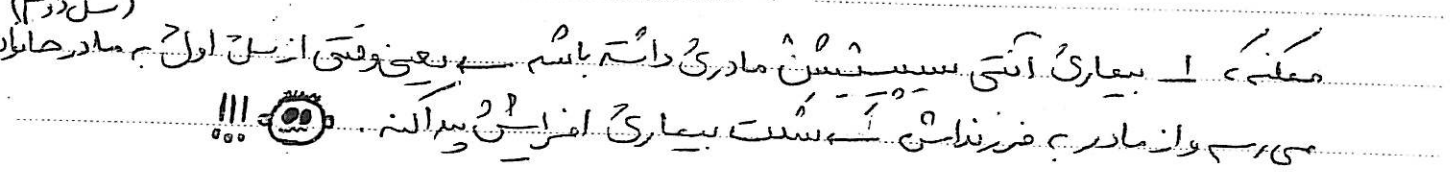 (نسل دوم)
ممکنه، ۱ بیماری آنتی سیپیشن مادری داشته باشه ← یعنی وقتی از نسل اول به مادر خانواده
می‌رسه و از مادر به فرزنداش ← شدت بیماری افزایش پیدا کنه. !!!